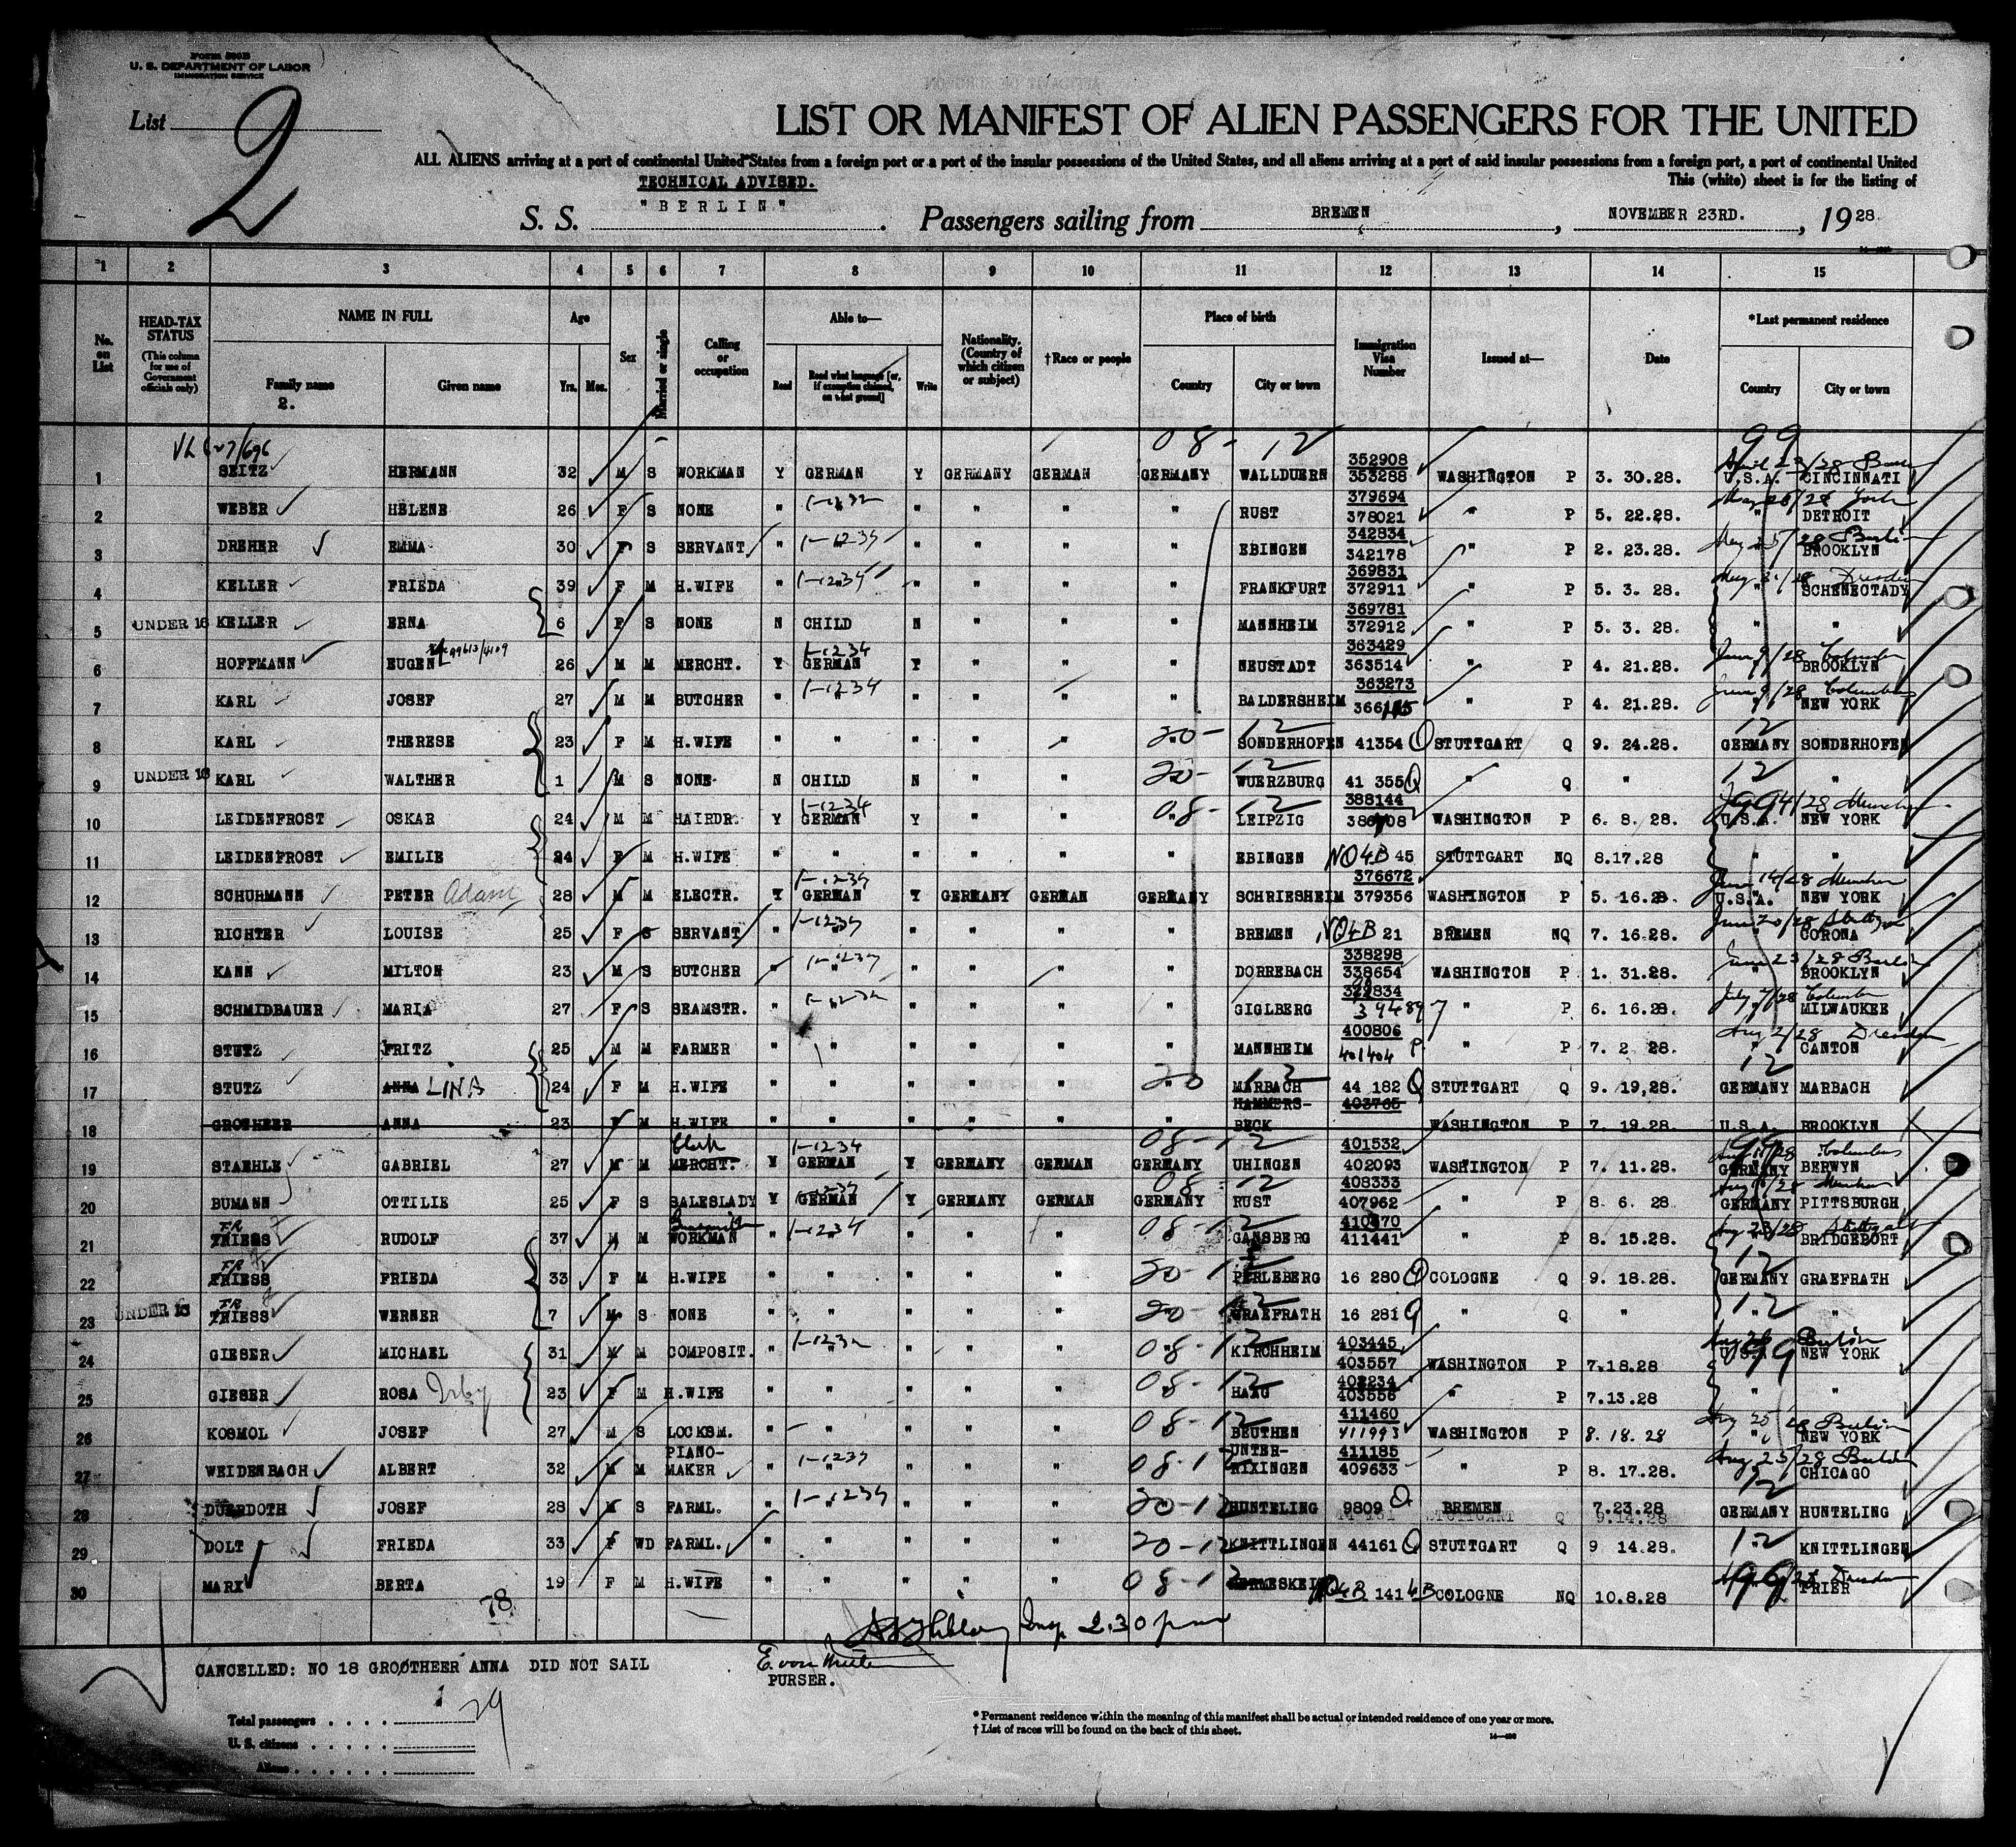 FORM 500B
U. S. DEPARTMENT OF LABOR
IMMIGRATION SERVICE
List 2
LIST OR MANIFEST OF ALIEN PASSENGERS FOR THE UNITED
ALL ALIENS arriving at a port of continental United States from a foreign port or a port of the insular possessions of the United States, and all aliens arriving at a port of said insular possessions from a foreign port, a port of continental United
This (white) sheet is for the listing of
TECHNICAL ADVISED.
S. S. "BERLIN" . Passengers sailing from BREMEN , NOVEMBER 23RD. , 19 28.
1 2 3 4 5 6 7 8 9 10 11 12 13 14 15
No. on List
HEAD-TAX STATUS (This column for use of Government officials only)
NAME IN FULL Family name Given name
2.
Age Yrs. Mos.
Sex
Married or single
Calling or occupation
Able to— Read Read what language [or, if exemption claimed, on what ground] Write
Nationality. (Country of which citizen or subject)
†Race or people
Place of birth Country City or town
Immigration Visa Number
Issued at—
Date
*Last permanent residence Country City or town
08- 12 99
1 SEITZ HERMANN 32 M S WORKMAN Y GERMAN Y GERMANY GERMAN GERMANY WALLDUERN 352908 353288 WASHINGTON P 3. 30.28. April 23/28 U.S.A. CINCINNATI
2 WEBER HELENE 26 F S NONE " " " " " " RUST 379694 378021 " P 5. 22.28. " DETROIT
3 DREHER EMMA 30 F S SERVANT " " " " " " EBINGEN 342834 342178 " P 2. 23.28. Berlin " BROOKLYN
4 KELLER FRIEDA 39 F M H.WIFE " " " " " " FRANKFURT 369831 372911 " P 5. 3. 28. Dresden " SCHENECTADY
5 UNDER 16 KELLER ERNA 6 F S NONE N CHILD N " " " MANNHEIM 369781 372912 " P 5. 3. 28. " "
6 HOFFMANN EUGEN 26 M M MERCHT. Y GERMAN Y " " " NEUSTADT 363429 363514 " P 4. 21.28. June 9/28 Columbus " BROOKLYN
7 KARL JOSEF 27 M M BUTCHER " " " " " " BALDERSHEIM 363273 " P 4. 21.28. June 9/28 Columbus " NEW YORK
8 KARL THERESE 23 F M H.WIFE " " " " " 20- 12 SONDERHOFEN 41354 Q STUTTGART Q 9. 24.28. 12 GERMANY SONDERHOFEN
9 UNDER 16 KARL WALTHER 1 M S NONE N CHILD N " " 20- 12 WUERZBURG 41 355 Q " Q " 12 " "
10 LEIDENFROST OSKAR 24 M M HAIRDR. Y GERMAN Y " " 08- 12 LEIPZIG 388144 WASHINGTON P 6. 8. 28. Munchen U.S.A. NEW YORK
11 LEIDENFROST EMILIE 24 F M H.WIFE " " " " " " EBINGEN NQ4B 45 STUTTGART NQ 8.17.28 " "
12 SCHUHMANN PETER Adam 28 M M ELECTR. Y GERMAN Y GERMANY GERMAN GERMANY SCHRIESHEIM 376672 379356 WASHINGTON P 5. 16.28. June 14/28 Munchen U.S.A. NEW YORK
13 RICHTER LOUISE 25 F S SERVANT " " " " " " BREMEN NQ4B 21 BREMEN NQ 7. 16.28. June 20/28 Stuttgart " CORONA
14 KANN MILTON 23 M S BUTCHER " " " " " " DORREBACH 338298 338654 WASHINGTON P 1. 31.28. June 23/28 Berlin " BROOKLYN
15 SCHMIDBAUER MARIA 27 F S SEAMSTR. " " " " " " GIGLBERG 329834 " P 6. 16.28. July 7/28 Columbus " MILWAUKEE
16 STUTZ FRITZ 25 M M FARMER " " " " " " MANNHEIM 400806 401404 P " P 7. 2 28. Aug 2/28 Dresden " CANTON
17 STUTZ ANNA LINA 24 F M H.WIFE " " " " " 20 12 MARBACH 44 182 Q STUTTGART Q 9. 19,28. 12 GERMANY MARBACH
18 GROTHEER ANNA 23 F M H.WIFE " " " " " " HAMMERS-BECK 403765 WASHINGTON P 7. 19.28. U.S.A. BROOKLYN
19 STAEHLE GABRIEL 27 M M MERCHT. Clerk Y GERMAN Y GERMANY GERMAN 08- 12 GERMANY UHINGEN 401532 402093 WASHINGTON P 7. 11.28. 99 Columbus GERMANY BERWYN
20 BUMANN OTTILIE 25 F S SALESLADY Y GERMAN Y GERMANY GERMAN 08 12 GERMANY RUST 408333 407962 " P 8. 6. 28 Munchen GERMANY PITTSBURGH
21 FRIESS RUDOLF 37 M M WORKMAN " " " " " 08-12 GANSBERG 411441 " P 8. 15.28. Aug 23/28 Stuttgart BRIDGEPORT
22 FRIESS FRIEDA 33 F M H.WIFE " " " " " 20-12 PERLEBERG 16 280 Q COLOGNE Q 9. 18.28. 12 GERMANY GRAEFRATH
23 UNDER 16 FRIESS WERNER 7 M S NONE " " " " " 20 12 GRAEFRATH 16 281 Q " Q " 12 " "
24 GIESER MICHAEL 31 M M COMPOSIT. " " " " " 08-12 KIRCHHEIM 403445 403557 WASHINGTON P 7.18.28 99 Berlin U.S.A. NEW YORK
25 GIESER ROSA Irby 23 F M H.WIFE " " " " " 08-12 HAAG 403556 " P 7.13.28 " "
26 KOSMOL JOSEF 27 M S LOCKSM. " " " " " 08-12 BEUTHEN 411460 411993 WASHINGTON P 8. 18. 28 Aug 25/28 Berlin " NEW YORK
27 WEIDENBACH ALBERT 32 M M PIANO-MAKER " " " " " 08-12 UNTER-RIXINGEN 411185 409633 " P 8. 17.28. Aug 23/28 Berlin CHICAGO
28 DUERDOTH JOSEF 28 M S FARML. " " " " " 20-12 HUNTELING 9809 Q BREMEN 7.23.28 12 GERMANY HUNTELING
29 DOLT FRIEDA 33 F WD FARML. " " " " " 20-12 KNITTLINGEN 44161 Q STUTTGART Q 9 14.28. 12 KNITTLINGEN
30 MARX BERTA 19 F M H.WIFE " " " " " 08-12 HERMESKEIL NQ4B 141 COLOGNE NQ 10.8.28 99 Dresden TRIER
78
Insp 2.30 pm
CANCELLED: NO 18 GROOTHEER ANNA DID NOT SAIL
PURSER.
1 29
Total passengers . . . .
U. S. citizens . . . . .
Aliens . . . . . .
* Permanent residence within the meaning of this manifest shall be actual or intended residence of one year or more.
† List of races will be found on the back of this sheet.